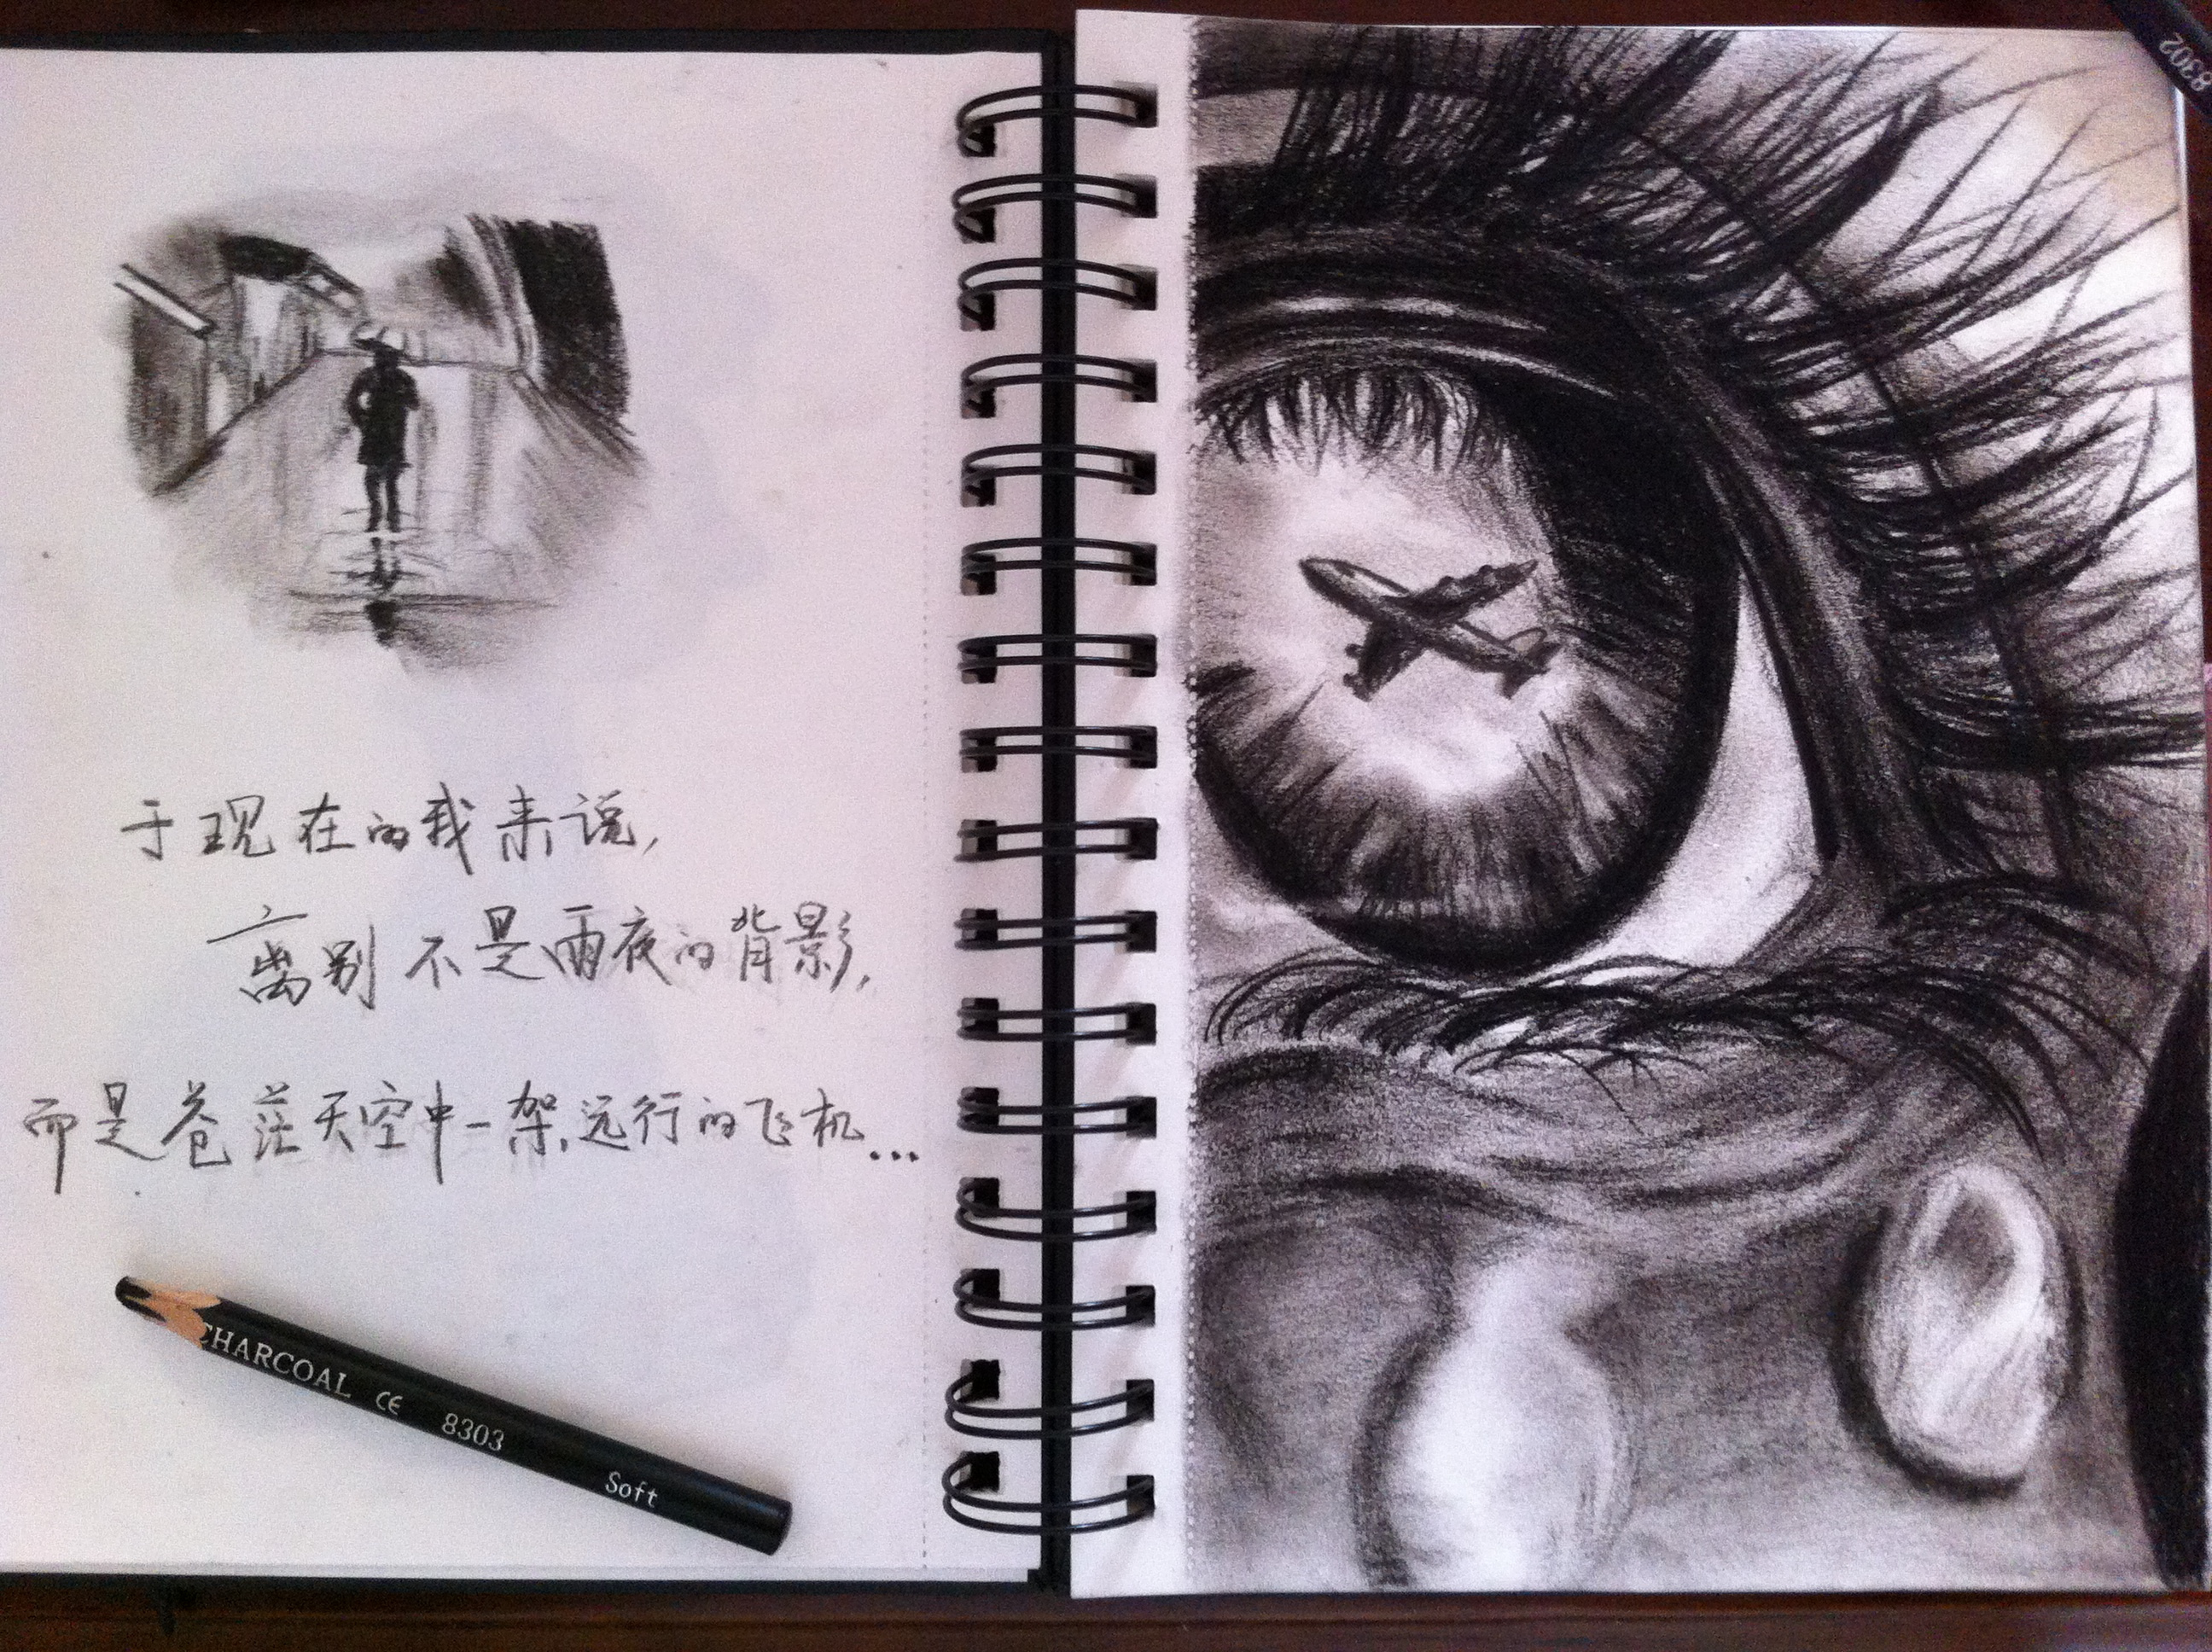 于现在的我来说,
离别不是雨夜的背影,
而是苍茫天空中一架远行的飞机...
CHARCOAL CE 8303 Soft
8302